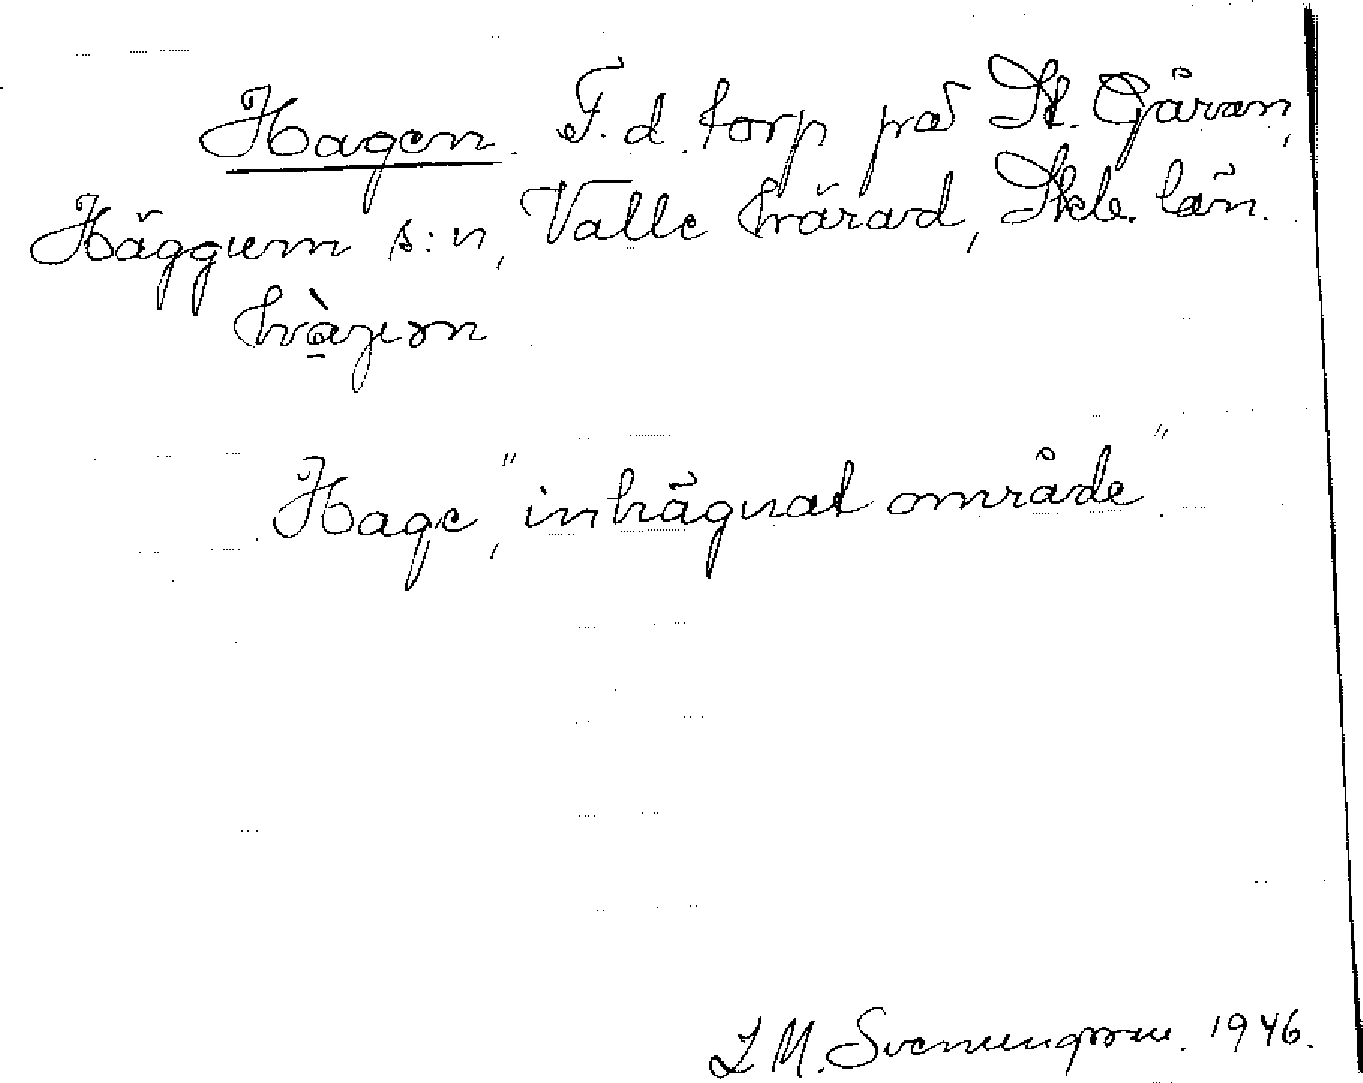 Hagen. F.d. torp på St. Gåran,
Häggum s:n, Valle härad, Skb. län.
hàgen
Hage, "inhägnat område".
L M. Svenungsson. 1946.